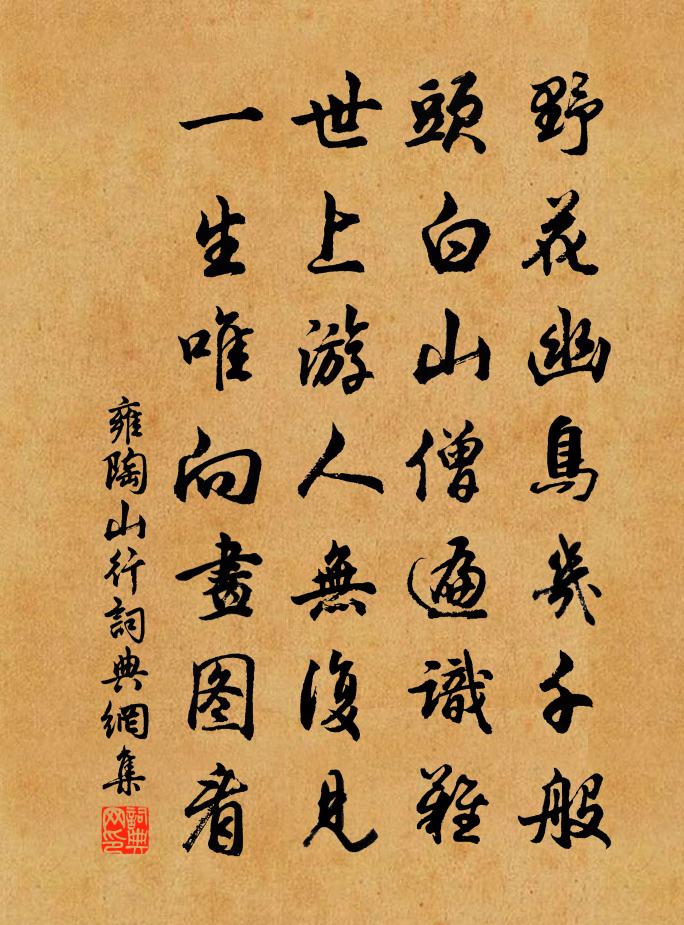 野花幽鳥幾千般
頭白山僧遍識難
世上游人無復見
一生唯向畫图看
雍陶山行詞典網集
詞典网印